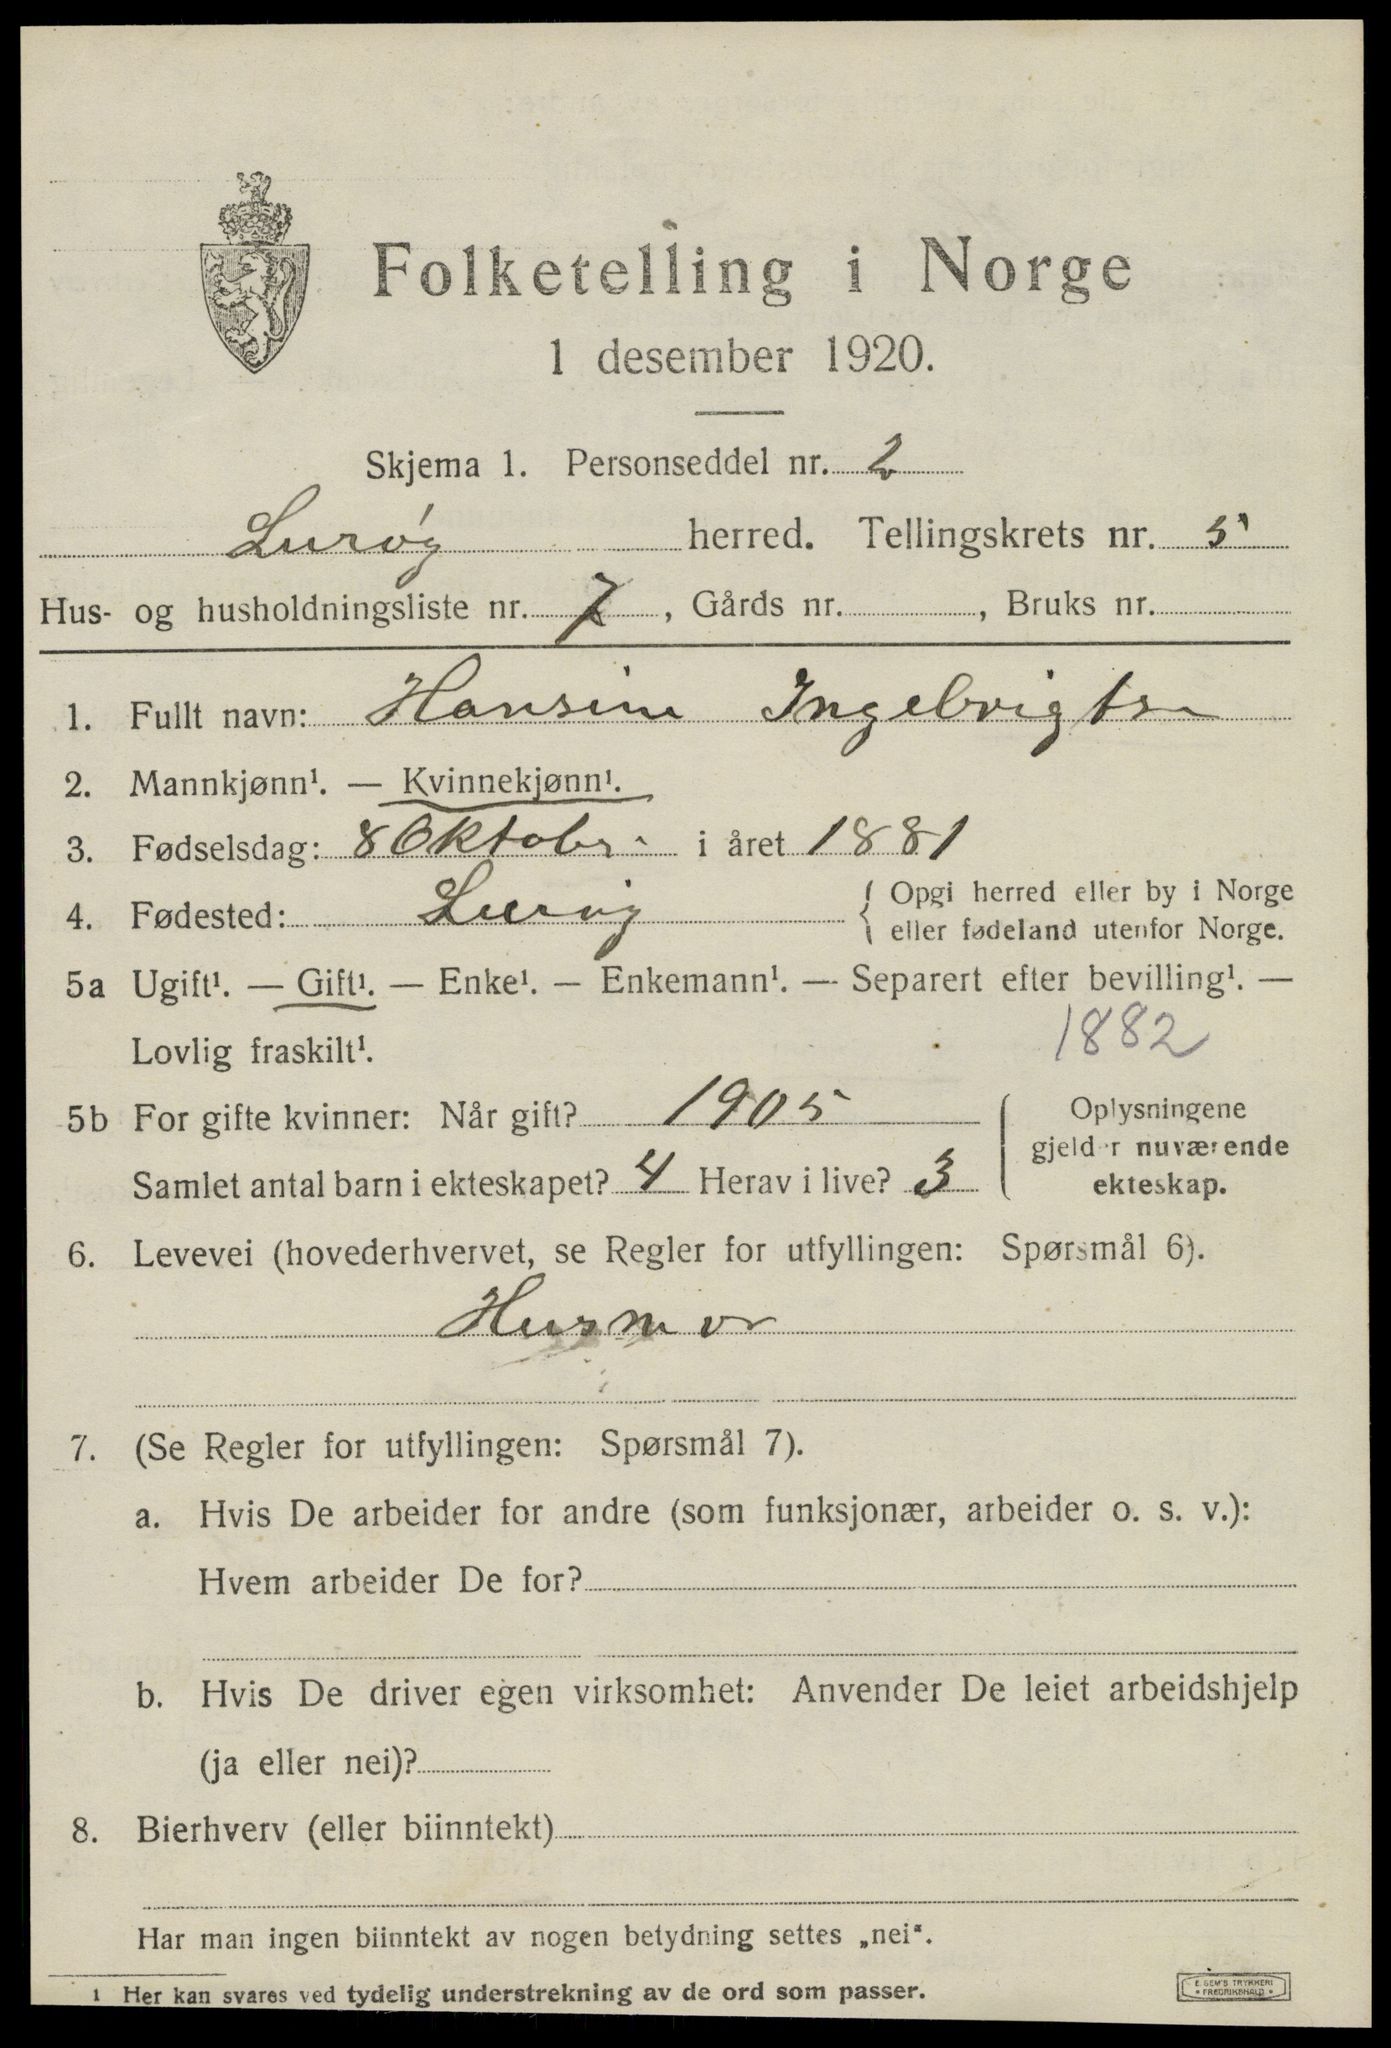 Folketelling i Norge
1 desember 1920.
Skjema 1. Personseddel nr. 2
Lurøy herred. Tellingskrets nr. 5
Hus- og husholdningsliste nr. 7, Gårds nr. , Bruks nr.
1. Fullt navn: Hansine Ingebrigtsen
2. Mannkjønn¹. — Kvinnekjønn¹.
3. Fødselsdag: 8 Oktober i året 1881
4. Fødested: Lurøy { Opgi herred eller by i Norge
eller fødeland utenfor Norge.
5a Ugift¹. — Gift¹. — Enke¹. — Enkemann¹. — Separert efter bevilling¹. —
Lovlig fraskilt¹. 1882
5b For gifte kvinner: Når gift? 1905
Samlet antal barn i ekteskapet? 4 Herav i live? 3
Oplysningene
gjelder nuværende
ekteskap.
6. Levevei (hovederhvervet, se Regler for utfyllingen: Spørsmål 6).
Husmor
7. (Se Regler for utfyllingen: Spørsmål 7).
a. Hvis De arbeider for andre (som funksjonær, arbeider o. s. v.):
Hvem arbeider De for?
b. Hvis De driver egen virksomhet: Anvender De leiet arbeidshjelp
(ja eller nei)?
8. Bierhverv (eller biinntekt)
Har man ingen biinntekt av nogen betydning settes „nei“.
1 Her kan svares ved tydelig understrekning av de ord som passer.
E. SEM'S TRYKKERI
• FREDRIKSHALD •